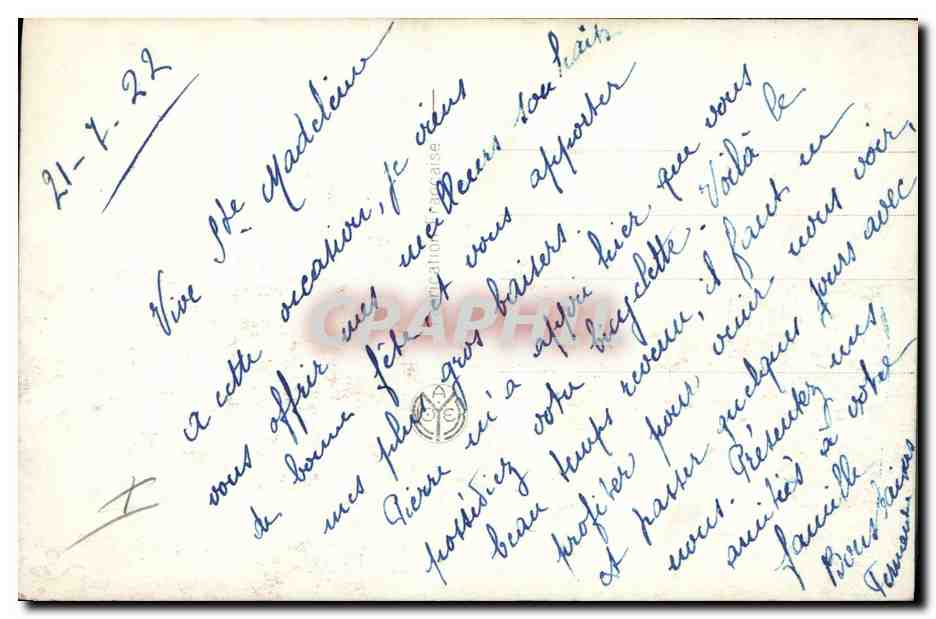 21-7-22
Vive Ste Madeleine
A cette occasion, je viens
vous offrir mes meilleurs souhaits
de bonne fête et vous apporter
mes plus gros baisers.
Pierre m'a appris hier que vous
possédiez votre bicyclette. Voilà le
beau temps revenu, il faut en
profiter pour venir nous voir,
et passer quelques jours avec
nous. Présentez mes
amitiés à votre
famille
Bons baisers
Fernande
I
Fabrication Française
A
CRAPHIL